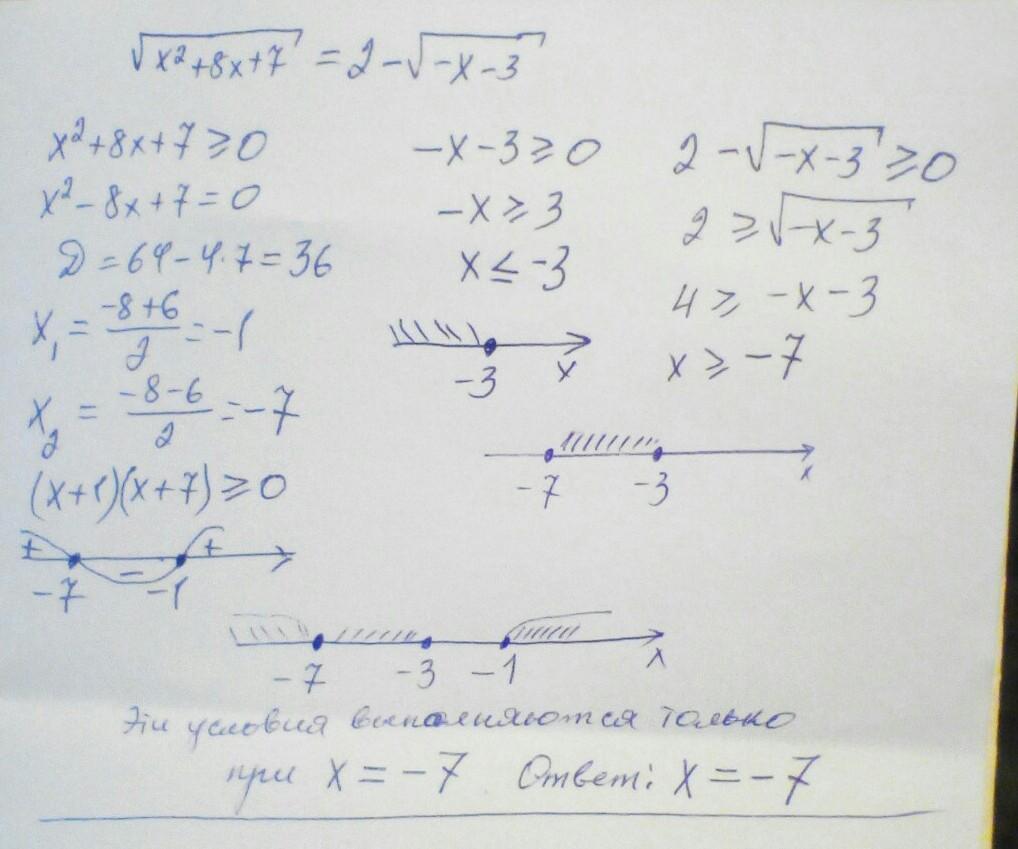 √(x²+8x+7) = 2-√(-x-3)
x²+8x+7 ≥ 0
x²-8x+7=0
D = 64-4·7=36
x₁ = (-8+6)/2 = -1
x₂ = (-8-6)/2 = -7
(x+1)(x+7) ≥ 0
+ - +
-7 -1
-x-3 ≥ 0
-x ≥ 3
x ≤ -3
-3 x
2-√(-x-3) ≥ 0
2 ≥ √(-x-3)
4 ≥ -x-3
x ≥ -7
-7 -3 x
-7 -3 -1 x
Эти условия выполняются только
при x = -7 Ответ: x = -7